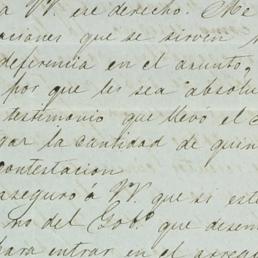 a VV. ese derecho. Me
aciones que se sirven
deferencia en el asunto,
por que les sea "absolu
testimonio que llevó el
gar la cantidad de quin
contestacion
aseguro á VV. que si este
no del Gobº. que desem
para entrar en el arreg